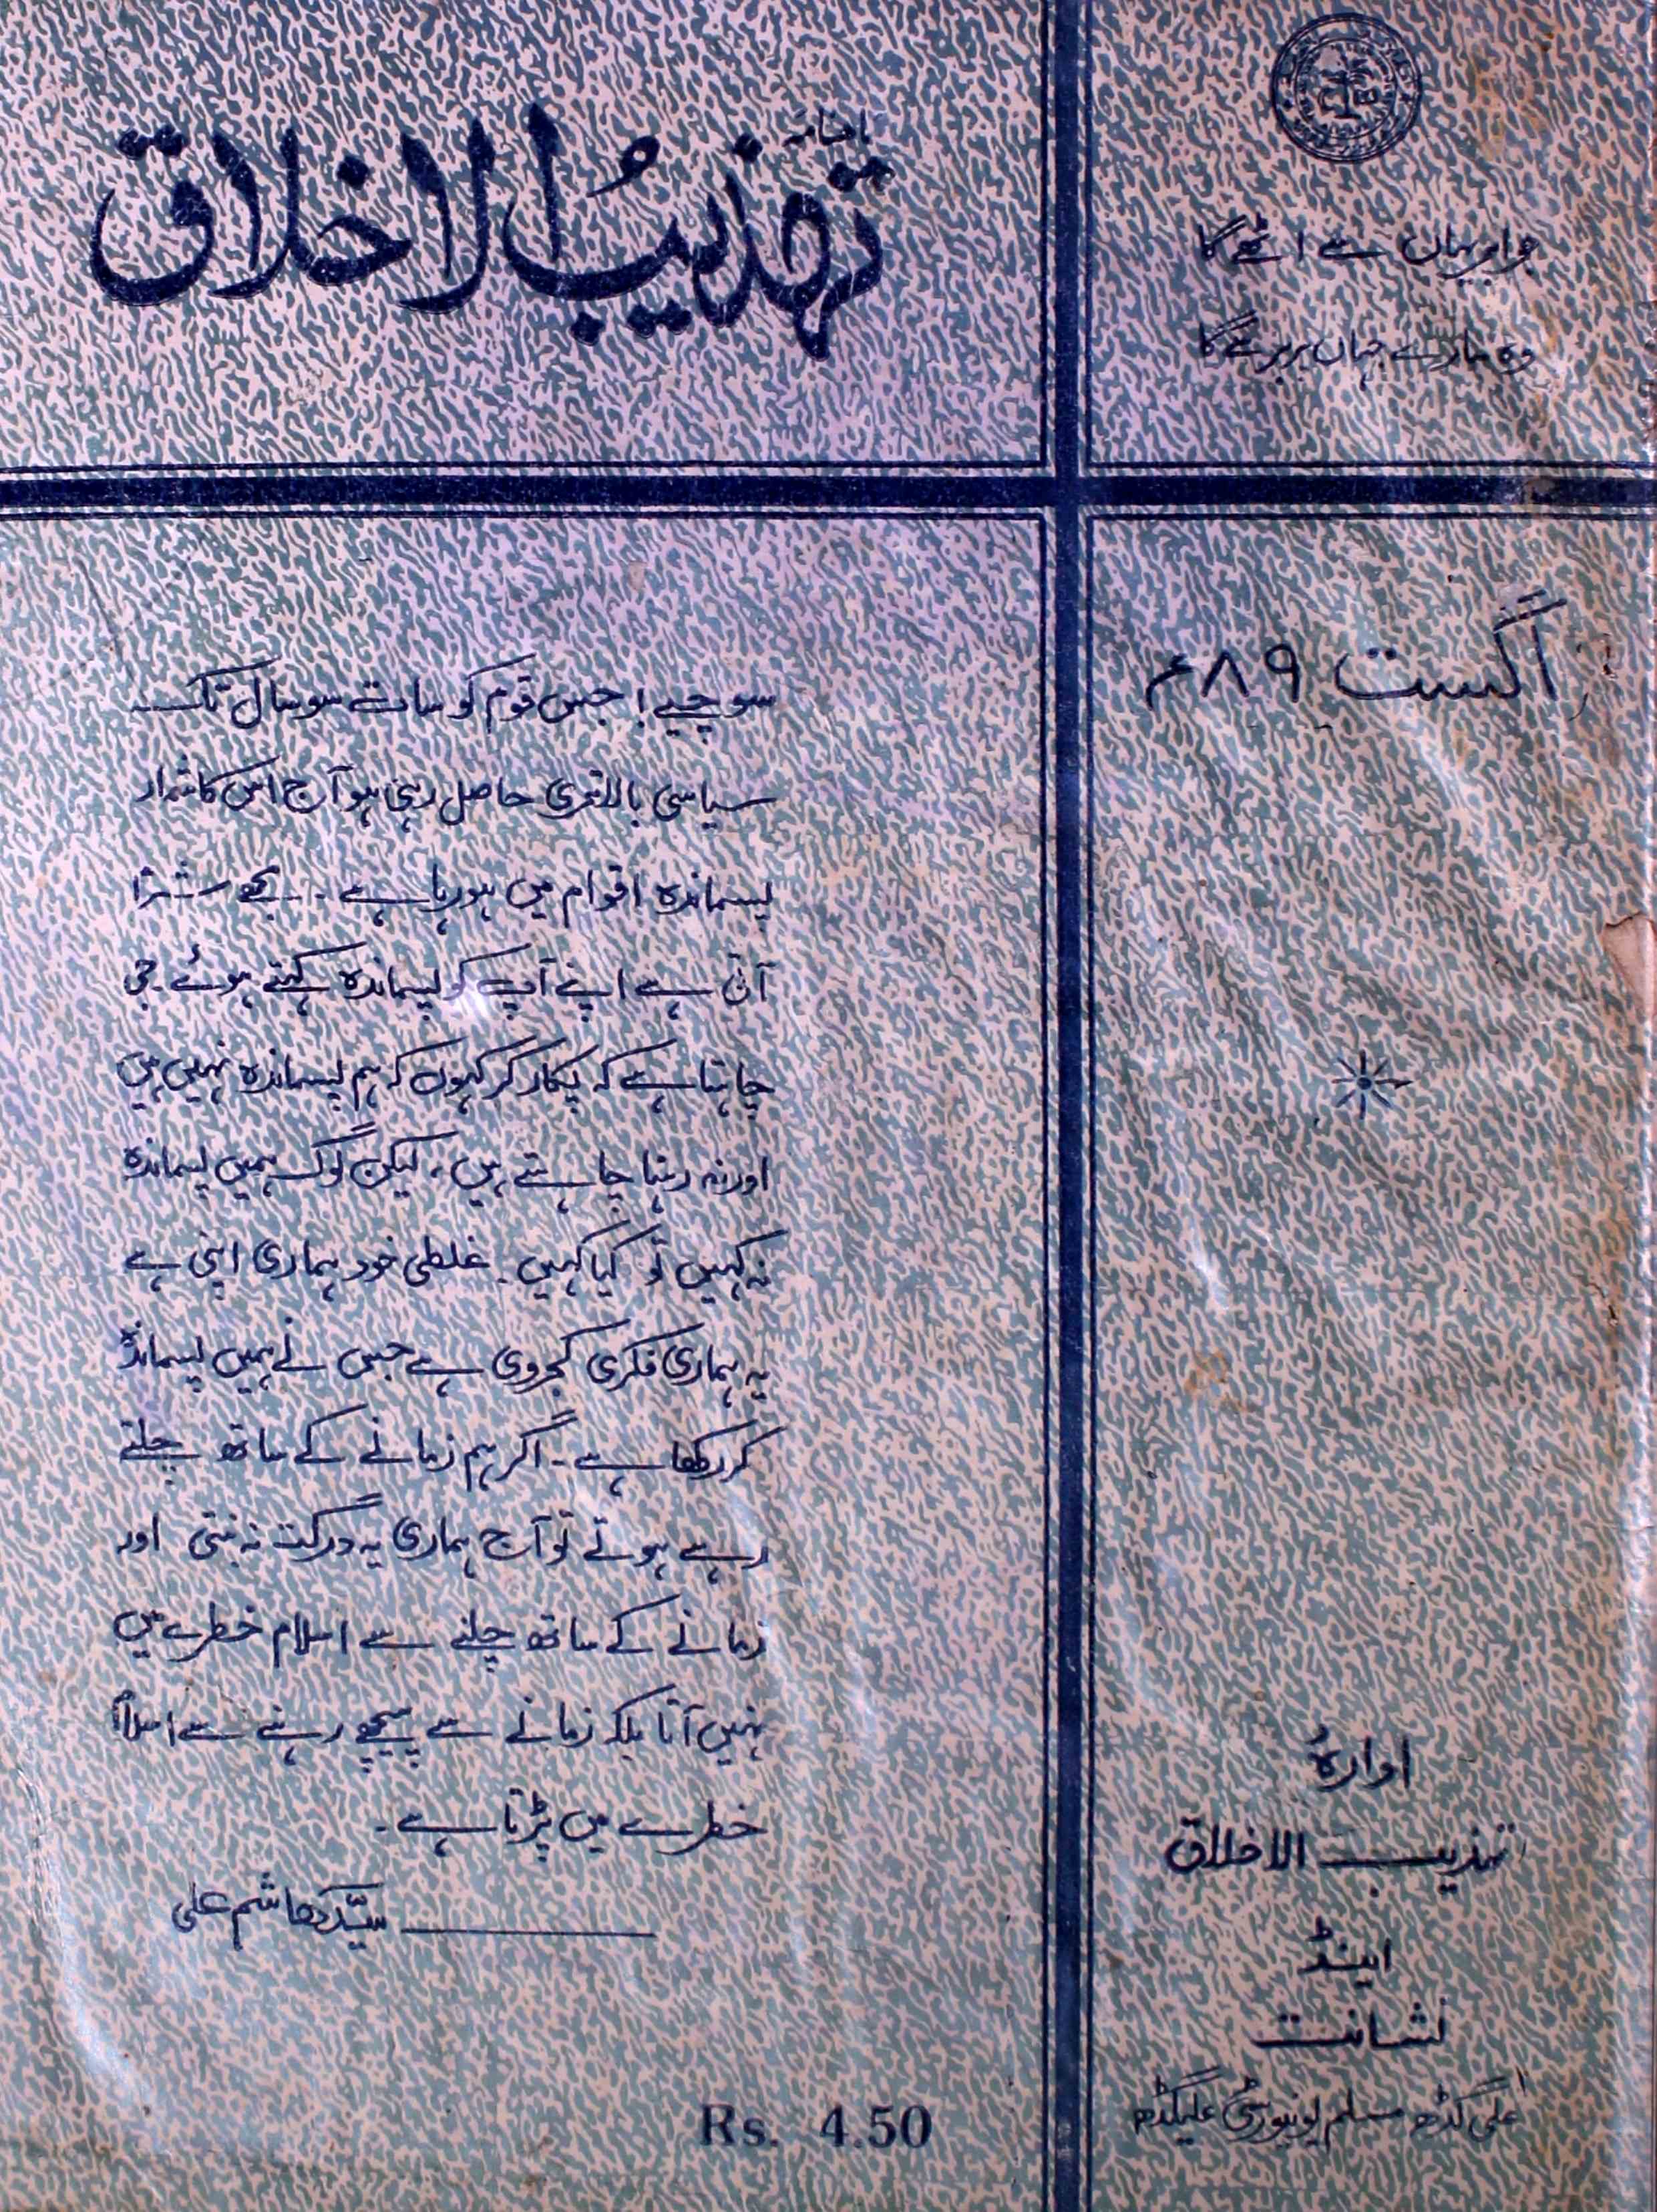 ماہنامہ
تہذیبُ الاخلاق
جو ابر یہاں سے اٹھے گا
وہ سارے جہاں پر برسے گا
اگست ۸۹ء
سوچیے! جس قوم کو سات سو سال تک
سیاسی بالاتری حاصل رہی ہو آج اس کا شمار
پسماندہ اقوام میں ہو رہا ہے۔ مجھے شرم
آتی ہے اپنے آپ کو پسماندہ کہتے ہوئے۔ جی
چاہتا ہے کہ پکار کر کہوں کہ ہم پسماندہ نہیں ہیں
اور نہ رہنا چاہتے ہیں، لیکن لوگ ہمیں پسماندہ
نہ کہیں تو کیا کہیں۔ غلطی خود ہماری اپنی ہے
یہ ہماری فکری کجروی ہے جس نے ہمیں پسماندہ
کر رکھا ہے۔ اگر ہم زمانے کے ساتھ چلتے
رہے ہوتے تو آج ہماری یہ درگت نہ بنتی اور
زمانے کے ساتھ چلنے سے اسلام خطرے میں
نہیں آتا بلکہ زمانے سے پیچھے رہنے سے اسلام
خطرے میں پڑتا ہے۔
سیّد ہاشم علی
ادارۂ
تہذیب الاخلاق
اینڈ
نشانت
علی گڑھ مسلم یونیورسٹی علیگڑھ
Rs. 4.50